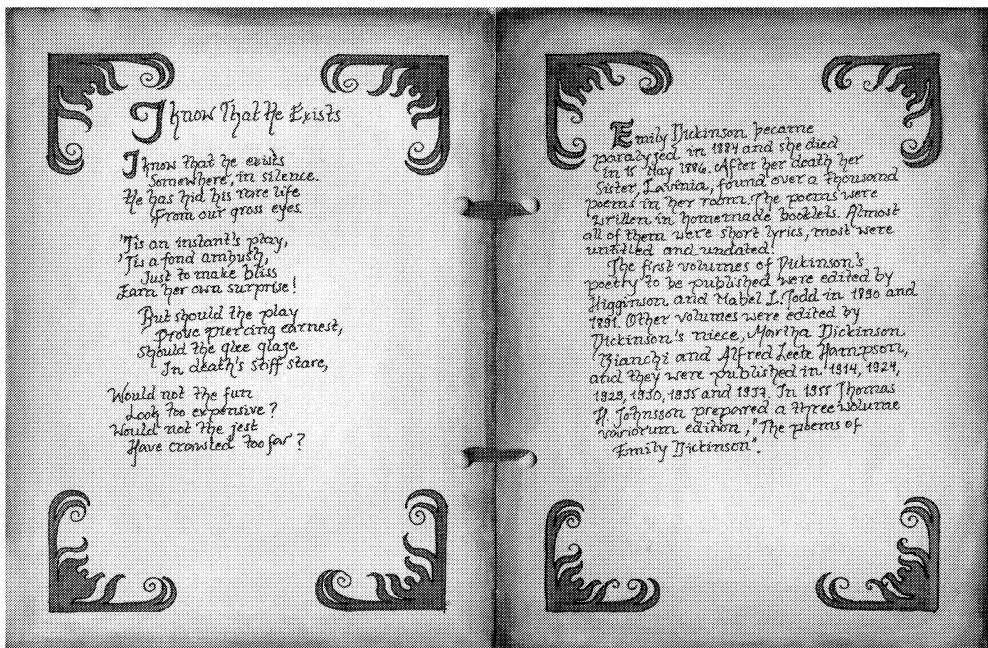 I know That He Exists
I know that he exists
Somewhere, in silence.
He has hid his rare life
From our gross eyes.
'Tis an instant's play,
'Tis a fond ambush,
Just to make bliss
Earn her own surprise!
But should the play
Prove piercing earnest,
Should the glee glaze
In death's stiff stare,
Would not the fun
Look too expensive?
Would not the jest
Have crawled too far?
Emily Dickinson became
paralysed in 1884 and she died
in 15 May 1886. After her death her
Sister, Lavinia, found over a thousand
poems in her room. The poems were
written in homemade booklets. Almost
all of them were short lyrics, most were
untitled and undated!
The first volumes of Dickinson's
poetry to be published were edited by
Higginson and Mabel L. Todd in 1890 and
1891. Other volumes were edited by
Dickinson's niece, Martha Dickinson
Bianchi and Alfred Leete Hampson,
and they were published in 1914, 1924,
1929, 1930, 1935 and 1937. In 1955 Thomas
H. Johnsson prepared a three volume
variorum edition, "The poems of
Emily Dickinson".